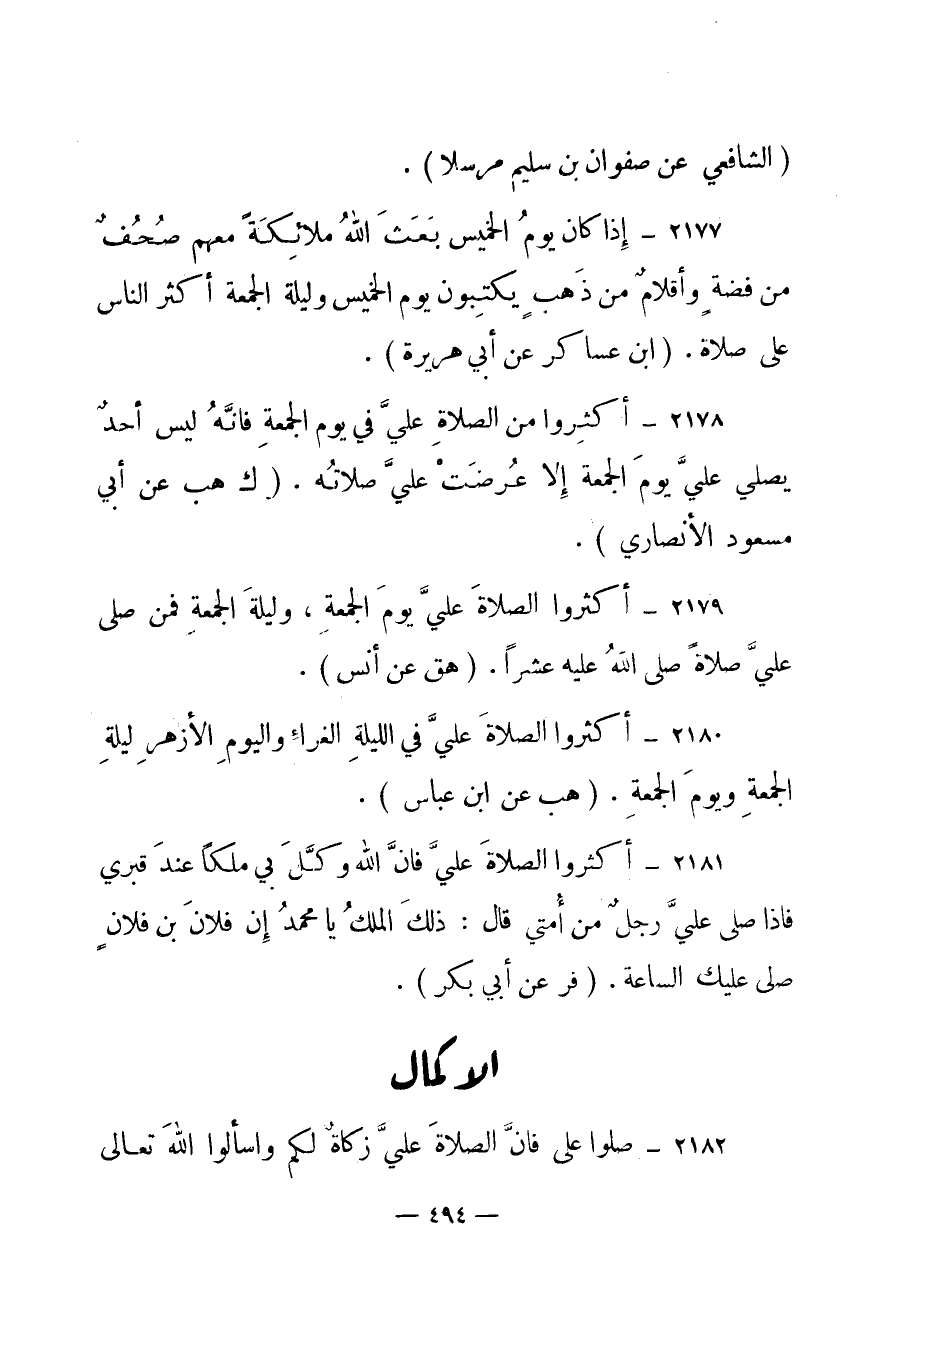 ( الشافعي عن صفوان بن سليم مرسلا ) .
٢١٧٧ – إِذا كان يومُ الخميس بَعَثَ اللهُ ملائِكَةً معهم صُحُفٌ
من فضةٍ وأقلامٌ من ذَهبٍ يكتبِون يوم الخميس وليلة الجمعة أكثر الناس
على صلاة . ( ابن عساكر عن أبي هريرة ) .
٢١٧٨ – أكثِروا من الصلاةِ عليَّ في يوم الجمعةِ فانَّهُ ليس أحدٌ
يصلي عليَّ يومَ الجمعة إِلا عُرضَتْ عليَّ صلاتُه . ( ك هب عن أبي
مسعود الأنصاري ) .
٢١٧٩ – أكثروا الصلاةَ عليَّ يومَ الجمعةِ ، وليلةَ الجمعةِ فمن صلى
عليَّ صلاةً صلى اللهُ عليه عشراً . ( هق عن أنس ) .
٢١٨٠ – أكثروا الصلاةَ عليَّ في الليلةِ الغراءِ واليومِ الأزهرِ ليلةِ
الجمعةِ ويومَ الجمعةِ . ( هب عن ابن عباس ) .
٢١٨١ – أكثروا الصلاةَ عليَّ فانَّ الله وكَّلَ بي ملكاً عندَ قبري
فاذا صلى عليَّ رجلٌ من أُمتي قال : ذلكَ الملكُ يا محمدُ إِن فلانَ بن فلانٍ
صلى عليك الساعة . ( فر عن أبي بكر ) .
الاكمال
٢١٨٢ – صلوا على فانَّ الصلاةَ عليَّ زكاةٌ لكم واسألوا اللهَ تعالى
— ٤٩٤ —